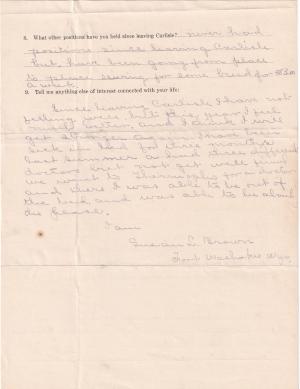 8. What other positions have you held since leaving Carlisle? never had
positions since leaving Carlisle
but, have been going from place
to place for some for $3.00
a week.
9. Tell me anything else of interest connected with your life:
Since leaving Carlisle I have not
feeling well, but this year I feel
much better, and I think I will
get stronger. I have been
sick in bed for three months
last summer & had three different
doctors but not get well and
we went to Thermopolis for a doctor
and there I was able to be out of
the bed and was able to be about
I am
Susan L. Brown
Fort Washakie Wyo.